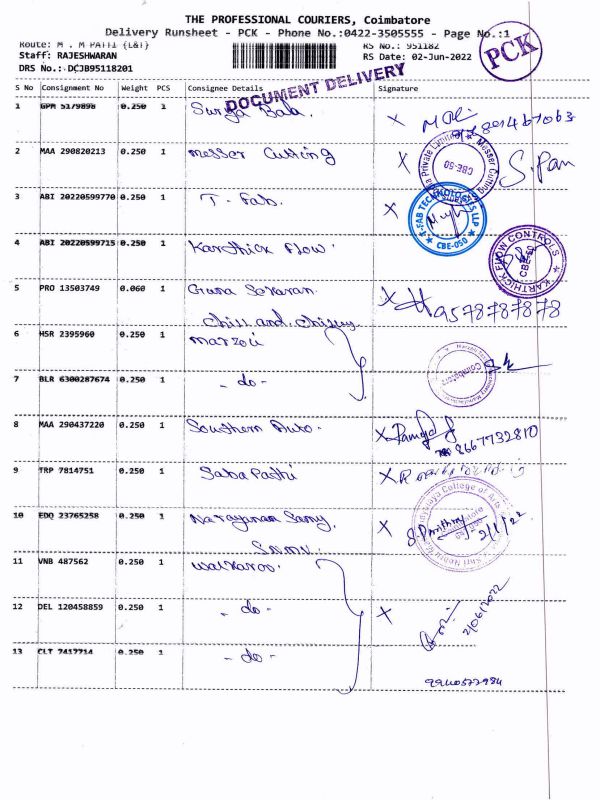 THE PROFESSIONAL COURIERS, Coimbatore
Delivery Runsheet - PCK - Phone No.:0422-3505555 - Page No.:1
PCK
Route: M . M PATTI {L&T}
RS No.: 951182
Staff: RAJESHWARAN
RS Date: 02-Jun-2022
DRS No.: DCJB95118201
DOCUMENT DELIVERY
S No Consignment No Weight PCS Consignee Details Signature
1 GPM 5179898 0.250 1 Surya Bala.
2 MAA 290820213 0.250 1 messer Cutting
Messer Cutting
CBE-50
S. Pan
3 ABI 20220599770 0.250 1 T. Fab.
T-FAB TECHNOLOGIES LLP
CBE-050
4 ABI 20220599715 0.250 1 Karthick Flow.
KARTHICK FLOW CONTROLS
CBE-50
5 PRO 13503749 0.060 1 Guna Sekaran
9578787878
6 HSR 2395960 0.250 1
Coimbatore
7 BLR 6300287674 0.250 1 - do -
8 MAA 290437220 0.250 1 Southern Auto.
8667732810
9 TRP 7814751 0.250 1 Saba Pathi
10 EDQ 23765258 0.250 1 Narayanan Samy,
College of Arts
11 VNB 487562 0.250 1 Walkaroo.
12 DEL 120458859 0.250 1 - do -
2/06/2022
13 CLT 7417714 0.250 1 - do -